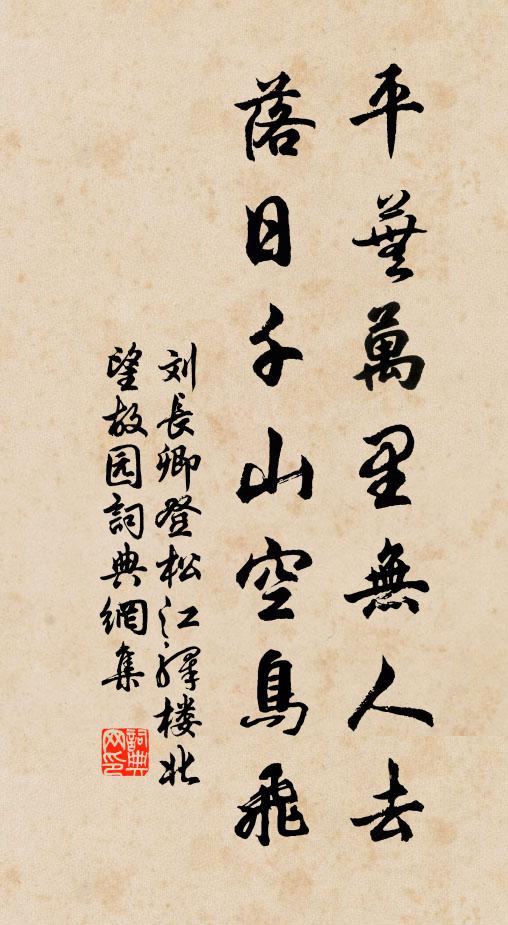 平蕪萬里無人去
落日千山空鳥飛
刘長卿登松江驛楼北
望故园詞典網集
詞典
网印